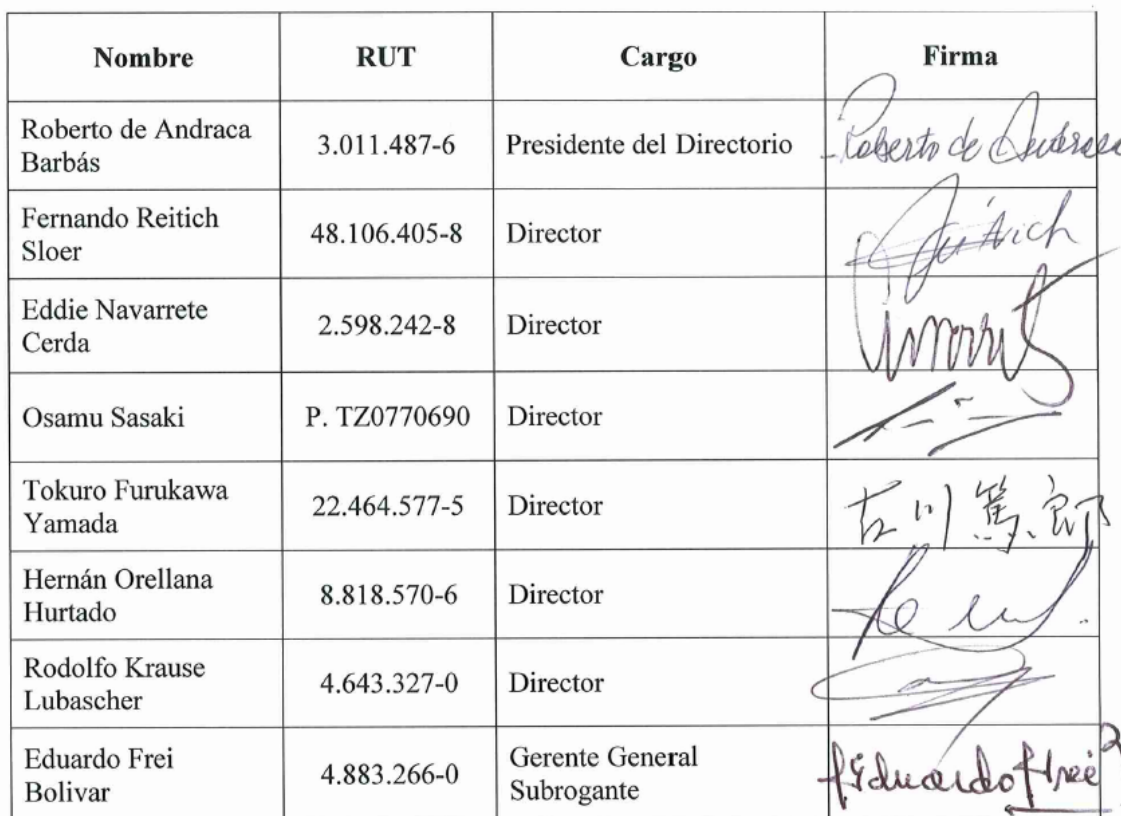 Nombre RUT Cargo Firma
Roberto de Andraca
Barbás
3.011.487-6
Presidente del Directorio
Roberto de Andraca
Fernando Reitich
Sloer
48.106.405-8
Director
Reitich
Eddie Navarrete
Cerda
2.598.242-8
Director
Osamu Sasaki
P. TZ0770690
Director
Tokuro Furukawa
Yamada
22.464.577-5
Director
古川篤郎
Hernán Orellana
Hurtado
8.818.570-6
Director
Rodolfo Krause
Lubascher
4.643.327-0
Director
Eduardo Frei
Bolivar
4.883.266-0
Gerente General
Subrogante
Eduardo Frei